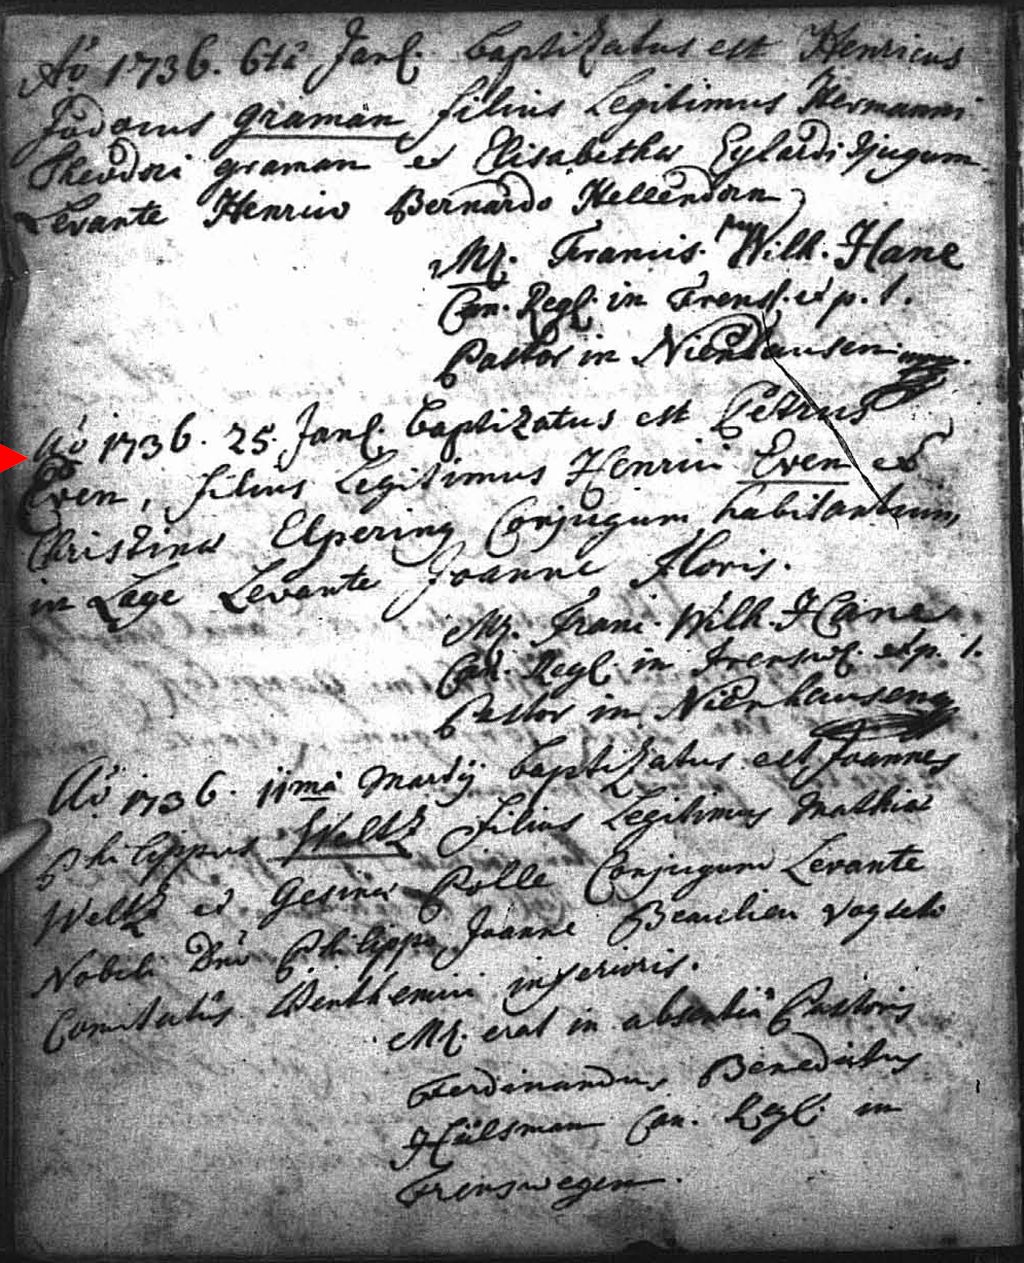 Aõ 1736. 6ta Janl. baptizatus est Henricus
Jodocus graman filius Legitimus Hermanni
Theodori graman et Elisabetha Eylardi
Levante Henrico Bernardo Hellendorn
Mr. Francis. Wilh. Hane
Can. Regl. in Frensl. et p. t.
Pastor in Nienhausen
Aõ 1736. 25. Janl. baptizatus est Petrus
Even, filius Legitimus Henrici Even et
Christina Elpering Conjugum habitantium
in Lage Levante Joanne Floris.
Mr. Franc. Wilh. Hane
Can. Regl. in Frensw. et p. t.
Pastor in Nienhausen
Aõ 1736. 11ma Martij baptizatus est Joannes
Philippus Weltz filius Legitimus Mathia
Weltz et Gesina Polle Conjugum Levante
Nobili Dno Philippo Joanne Beaulieu
Comitatus Benthemii inferioris.
Mr. erat in absentia Pastoris
Ferdinandus Benedictus
Hülsman Can. Regl. in
Frenswegen.